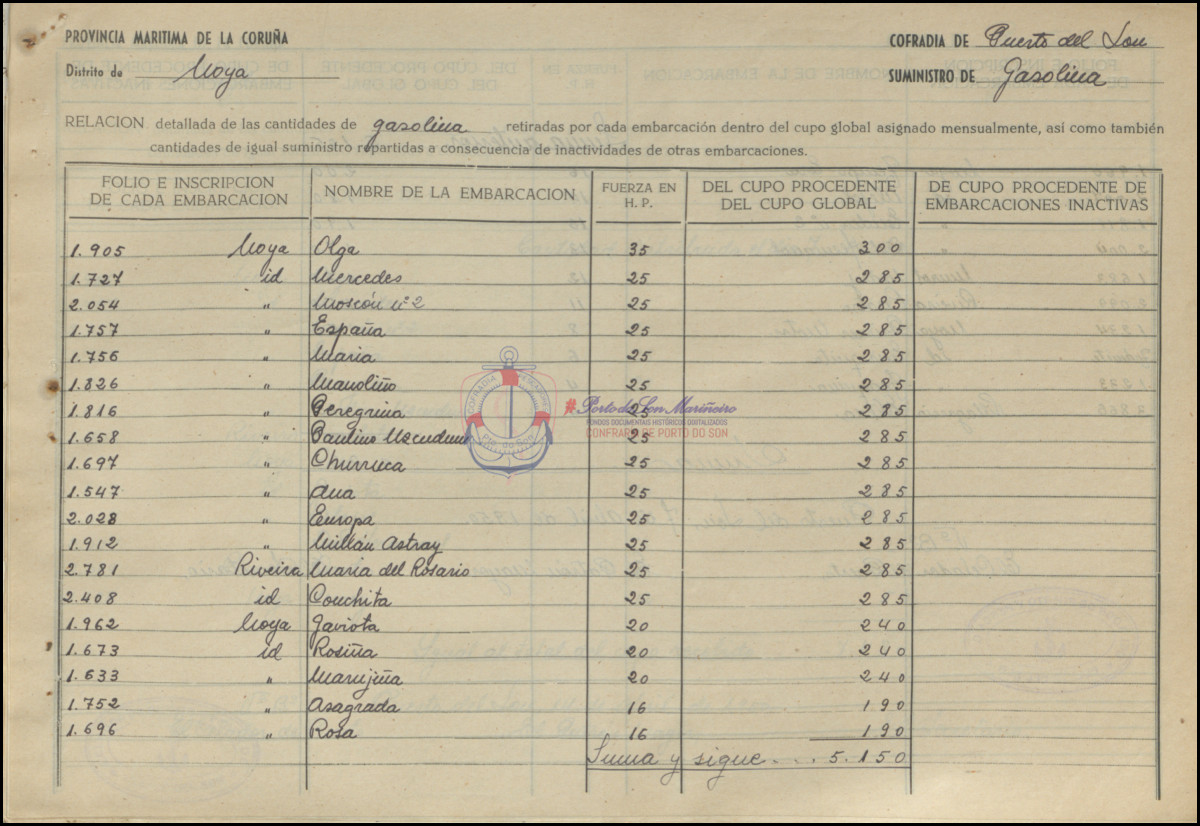 PROVINCIA MARITIMA DE LA CORUÑA
COFRADIA DE Puerto del Son
Distrito de Noya
SUMINISTRO DE Gasolina
RELACION detallada de las cantidades de gasolina retiradas por cada embarcación dentro del cupo global asignado mensualmente, así como también
cantidades de igual suministro repartidas a consecuencia de inactividades de otras embarcaciones.
FOLIO E INSCRIPCION DE CADA EMBARCACION NOMBRE DE LA EMBARCACION FUERZA EN H. P. DEL CUPO PROCEDENTE DEL CUPO GLOBAL DE CUPO PROCEDENTE DE EMBARCACIONES INACTIVAS
1.905 Noya Olga 35 300
1.727 id Mercedes 25 285
2.054 " Moscón nº 2 25 285
1.757 " España 25 285
1.756 " Maria 25 285
1.826 " Manoliño 25 285
1.816 " Peregrina 25 285
1.658 " Paulino Uzcudun 25 285
1.697 " Churruca 25 285
1.547 " Ana 25 285
2.028 " Europa 25 285
1.912 " Millán Astray 25 285
2.781 Riveira Maria del Rosario 25 285
2.408 id Conchita 25 285
1.962 Noya Gaviota 20 240
1.673 id Rosiña 20 240
1.633 " Marujiña 20 240
1.752 " Asagrada 16 190
1.696 " Rosa 16 190
Suma y sigue.... 5.150
COFRADIA
Pto. do Son
#Porto do Son Mariñeiro
FUNDOS DOCUMENTAIS HISTÓRICOS DIGITALIZADOS
CONFRARÍA DE PORTO DO SON